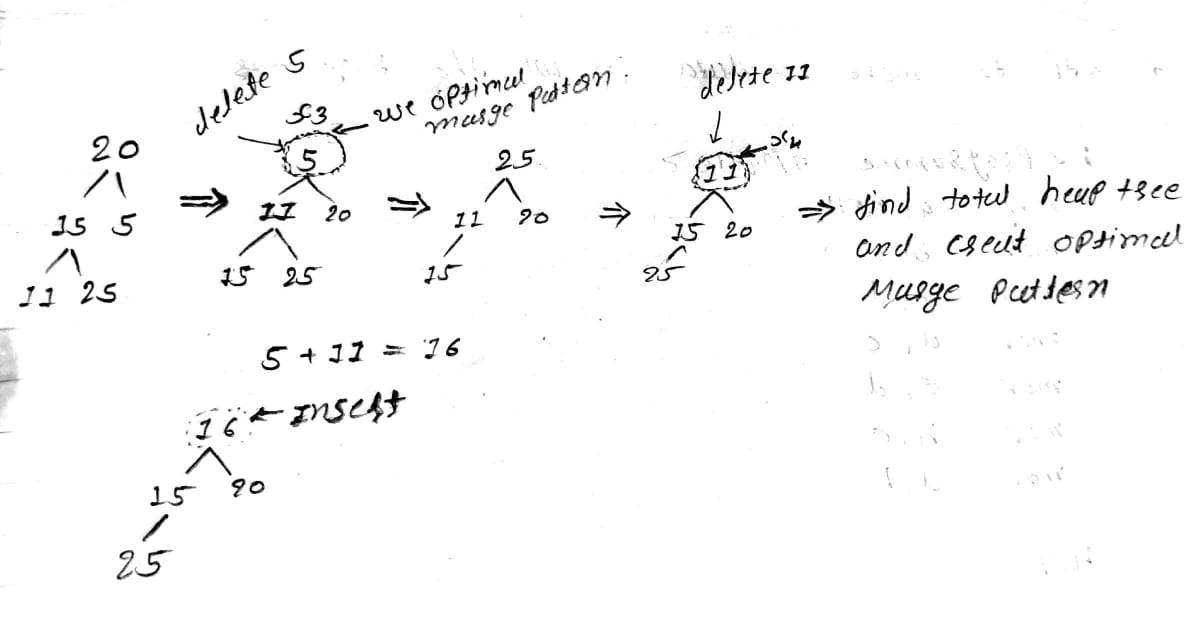 delete 5
x3
we optimal
marge pattern.
delete 11
x4
20
15 5
11 25
⇒
5
11 20
15 25
⇒
25
11 20
15
⇒
11
15 20
25
⇒ find total heap tree
and creat optimal
Marge pattern
5 + 11 = 16
16 ← Insert
15 20
25